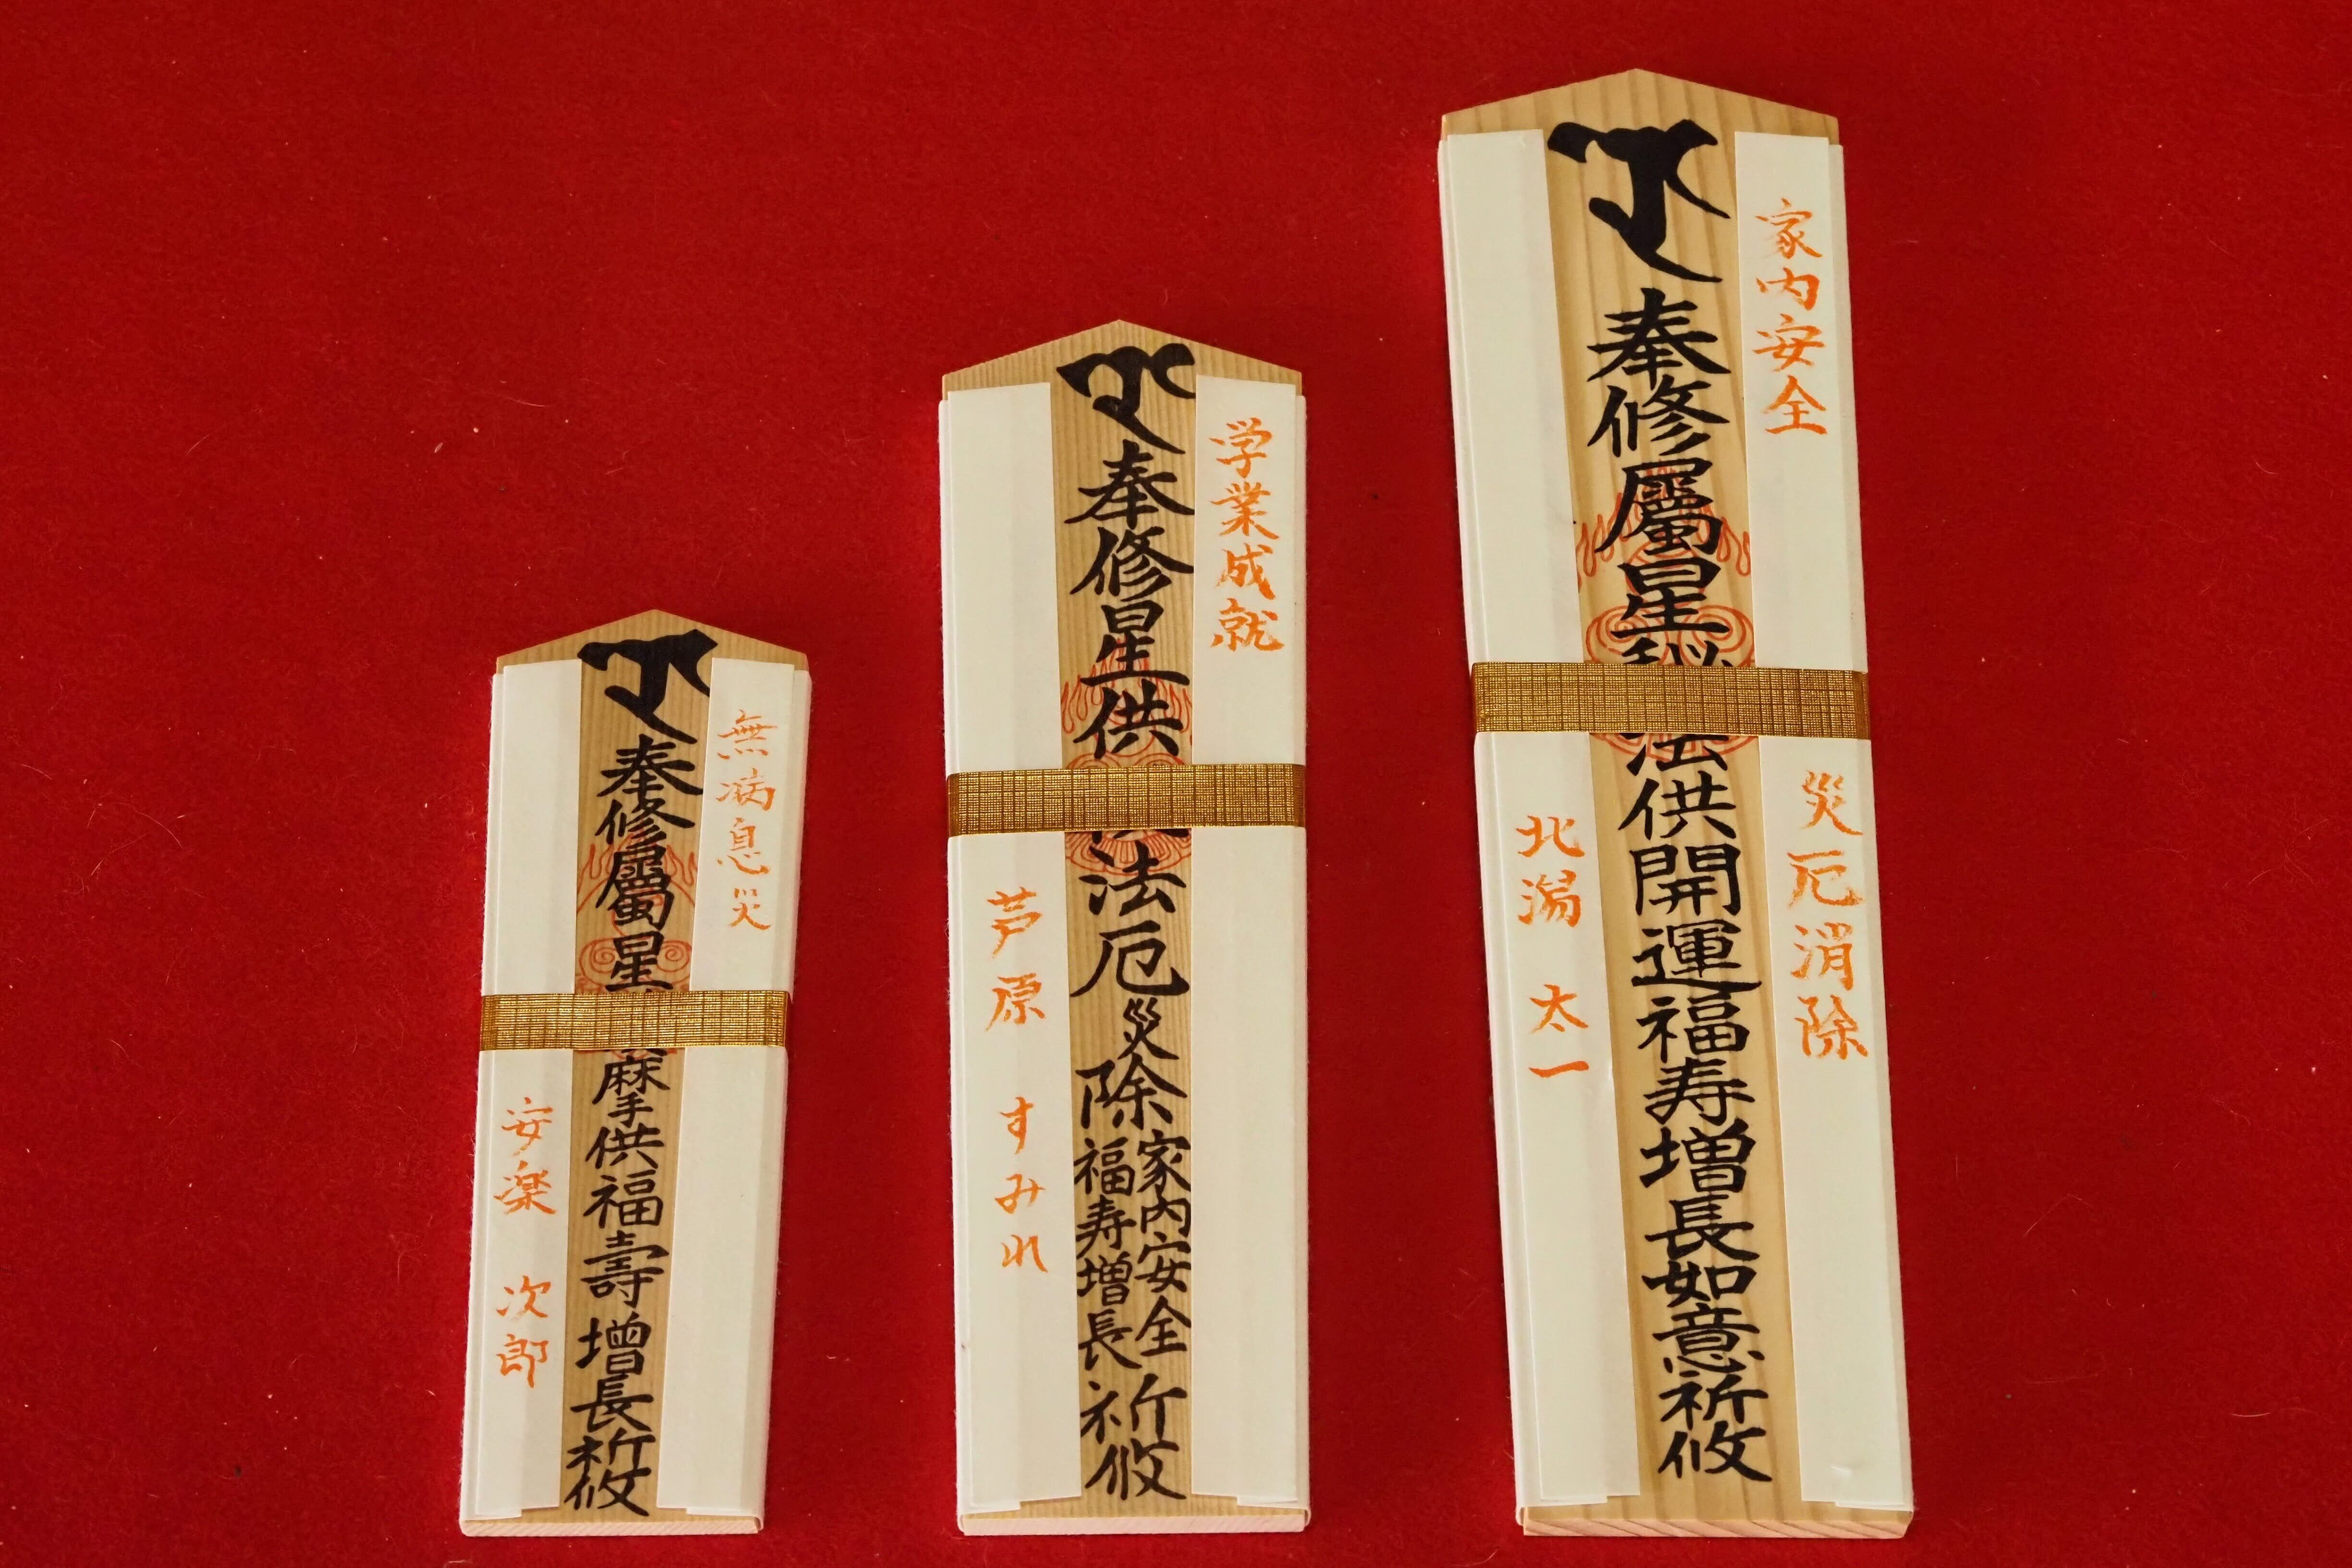 無病息災
奉修屬星
麻手供福壽增長祈攸
安楽 次郎
学業成就
奉修星供
法厄災除
家内安全
福寿増長
祈攸
芦原 すみれ
家内安全
災厄消除
奉修屬星秘法供開運福寿増長如意祈攸
北潟 太一